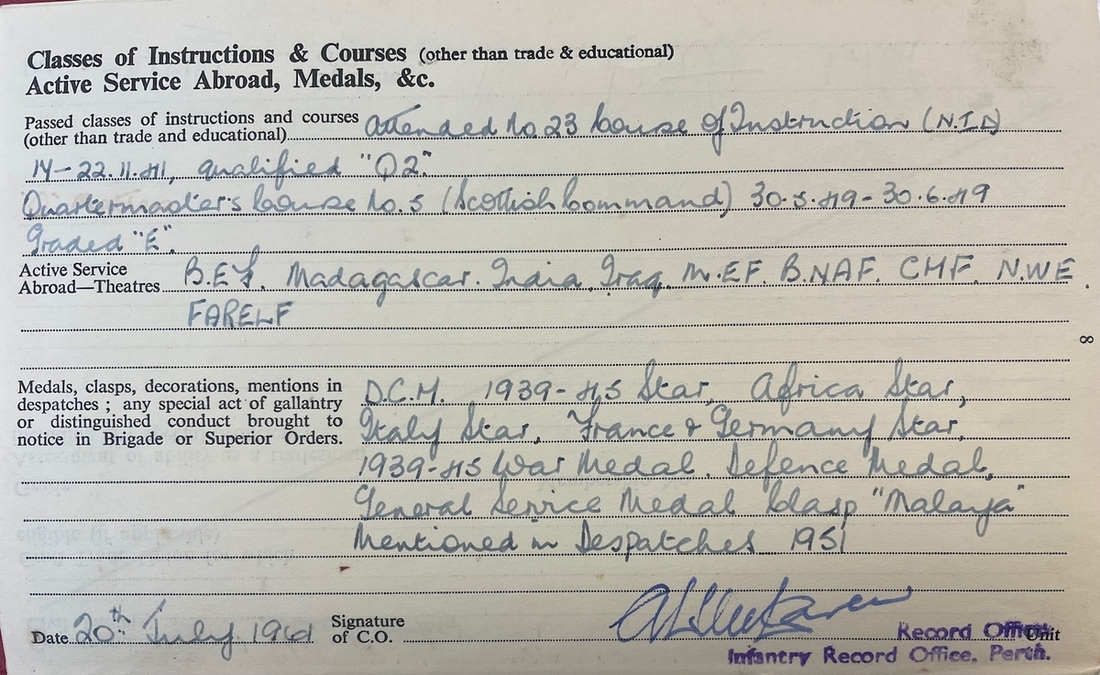 Classes of Instructions & Courses (other than trade & educational)
Active Service Abroad, Medals, &c.
Passed classes of instructions and courses
(other than trade and educational) Attended No 23 Course of Instruction (N.I.D)
14-22.11.41, qualified "Q2".
Quartermaster's Course No. 5 (Scottish Command) 30.5.49-30.6.49
Graded "E".
Active Service
Abroad—Theatres B.E.F. Madagascar. India. Iraq, M.EF. B.NAF. CMF. N.WE
FARELF
8
Medals, clasps, decorations, mentions in
despatches ; any special act of gallantry
or distinguished conduct brought to
notice in Brigade or Superior Orders.
D.C.M. 1939-45 Star, Africa Star,
Italy Star, France & Germany Star,
1939-45 War Medal. Defence Medal,
General Service Medal Clasp "Malaya"
Mentioned in Despatches 1951
Date 20th July 1961 Signature
of C.O.
Record Officer Unit
Infantry Record Office, Perth.